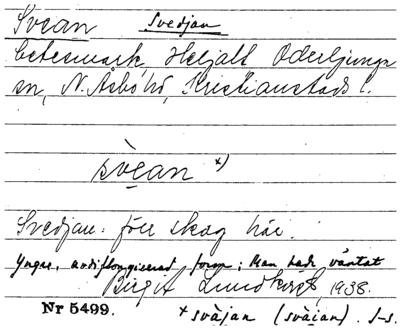 Svean Svedjan
betesmark, Heljalt Oderljunga
sn, N. Åsbo hd, Kristianstads l.
svean x)
Svedjan: förr skog här.
Yngre, avdiftongiserad form; Man hade väntat
Birgit Lundkvist 1938.
Nr 5499. x svåjan (svåian). S-s.